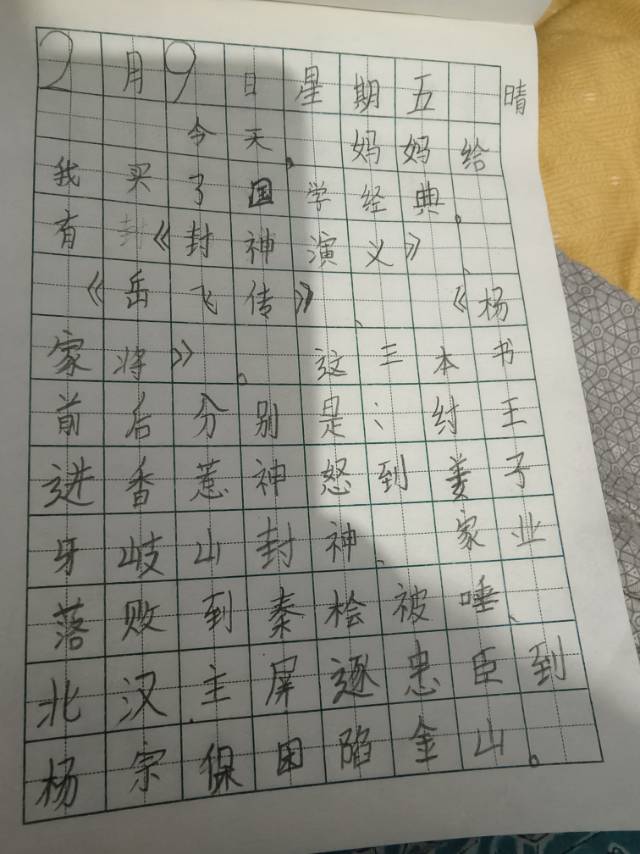 2月9日星期五 晴
今天。妈妈给
我买了国学经典。
有封《封神演义》、
《岳飞传》、《杨
家将》。这三本书
前后分别是:纣王
进香惹神怒到姜子
牙岐山封神、家业
落败到秦桧被唾、
北汉主屏逐忠臣到
杨宗保困陷金山。